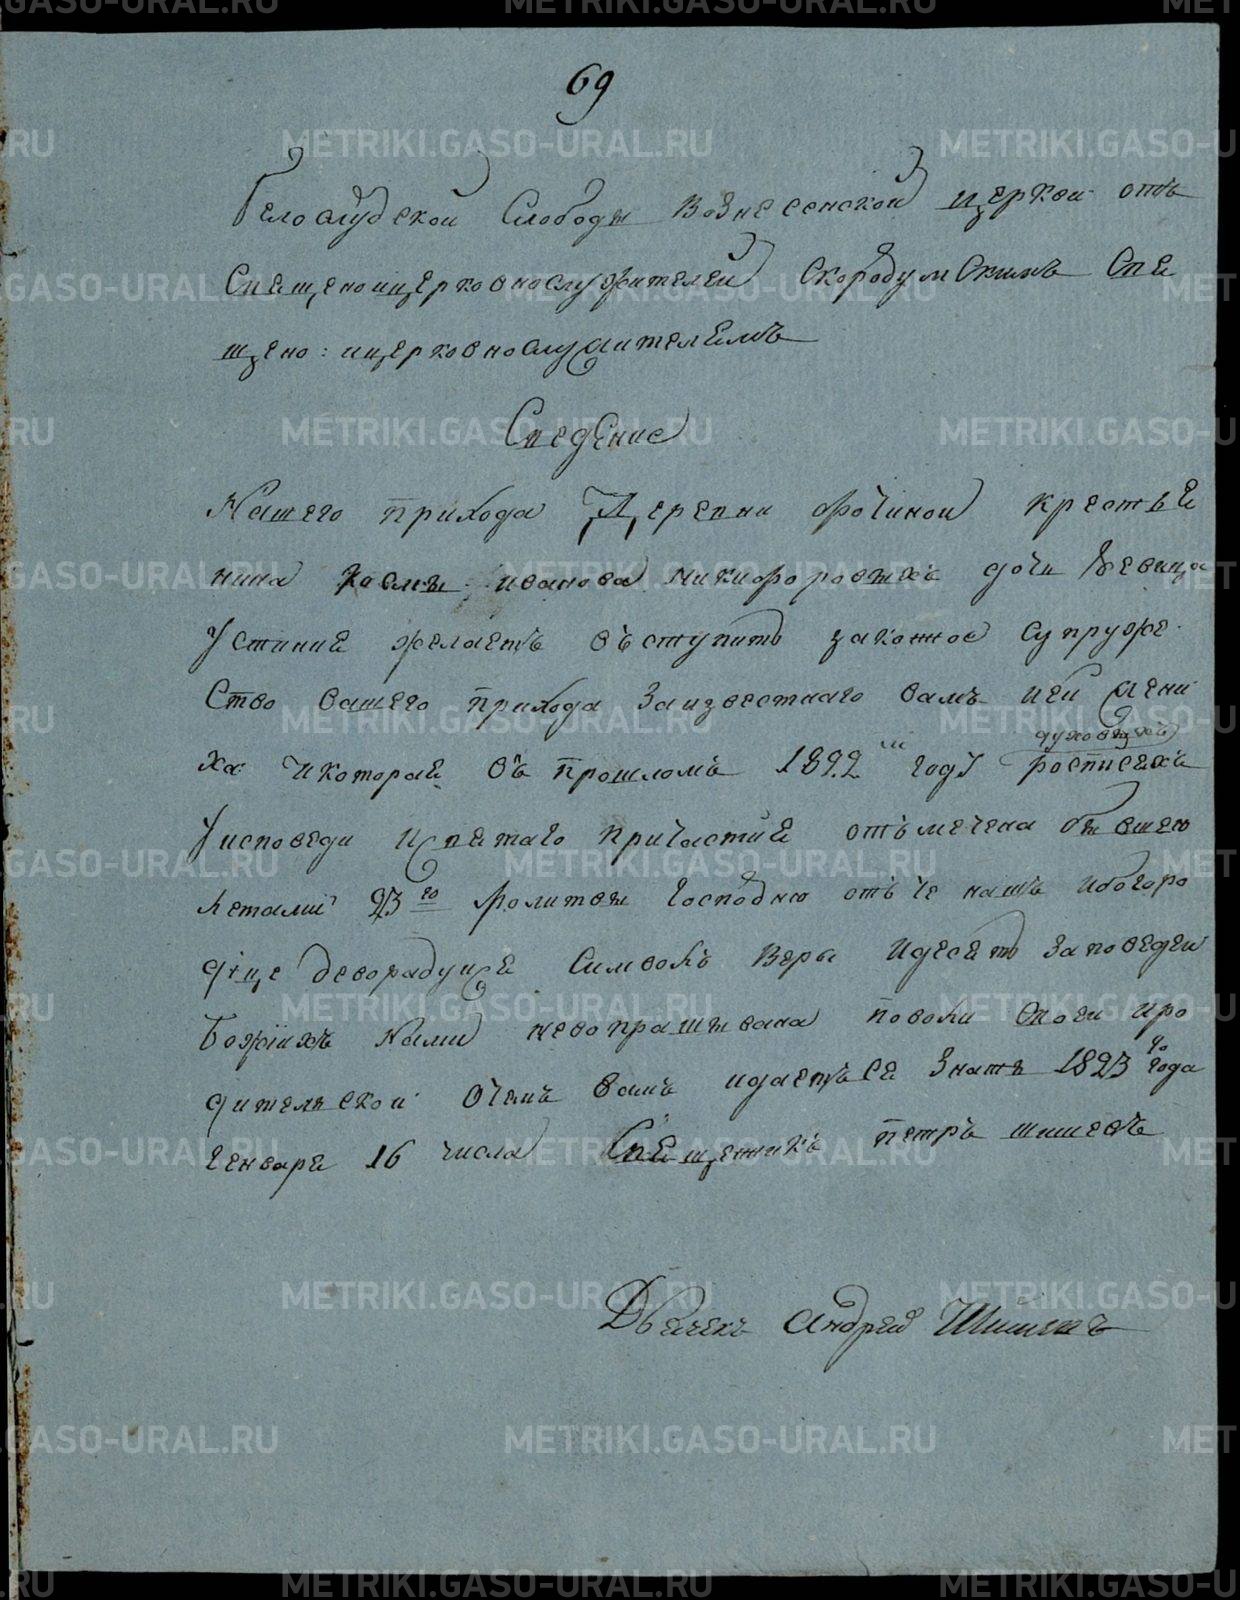 69
Белослудской Слободы Вознесенской церкви отъ
Священноицерковнослужителей Скородумскимъ Свя
щено: ицерковнослужителямъ
Сведение
Нашего прихода Деревни Фочиной крестья
нина Козмы Иванова Никифоровыхъ дочь Девица
Устиния желаетъ въступить законное супруже
ство вашего прихода заизвестнаго вамъ ней жени
ха: икоторая въ прошломъ 1822 м году духовной росписяхъ
Уисповеди исвятаго причастия отъмечена бывшею
летами 23 го молитвы господню отъче нашъ ибогоро
дице деворадуйся Символъ веры идесять заповедей
Божиихъ Нами невопрашивана поволи своей иро
дительской Очемъ вамъ идаетъся знать 1823 го года
Генваря 16 числа Священникъ петръ шишевъ
Дьячекъ Андрей Шишевъ
METRIKI.GASO-URAL.RU